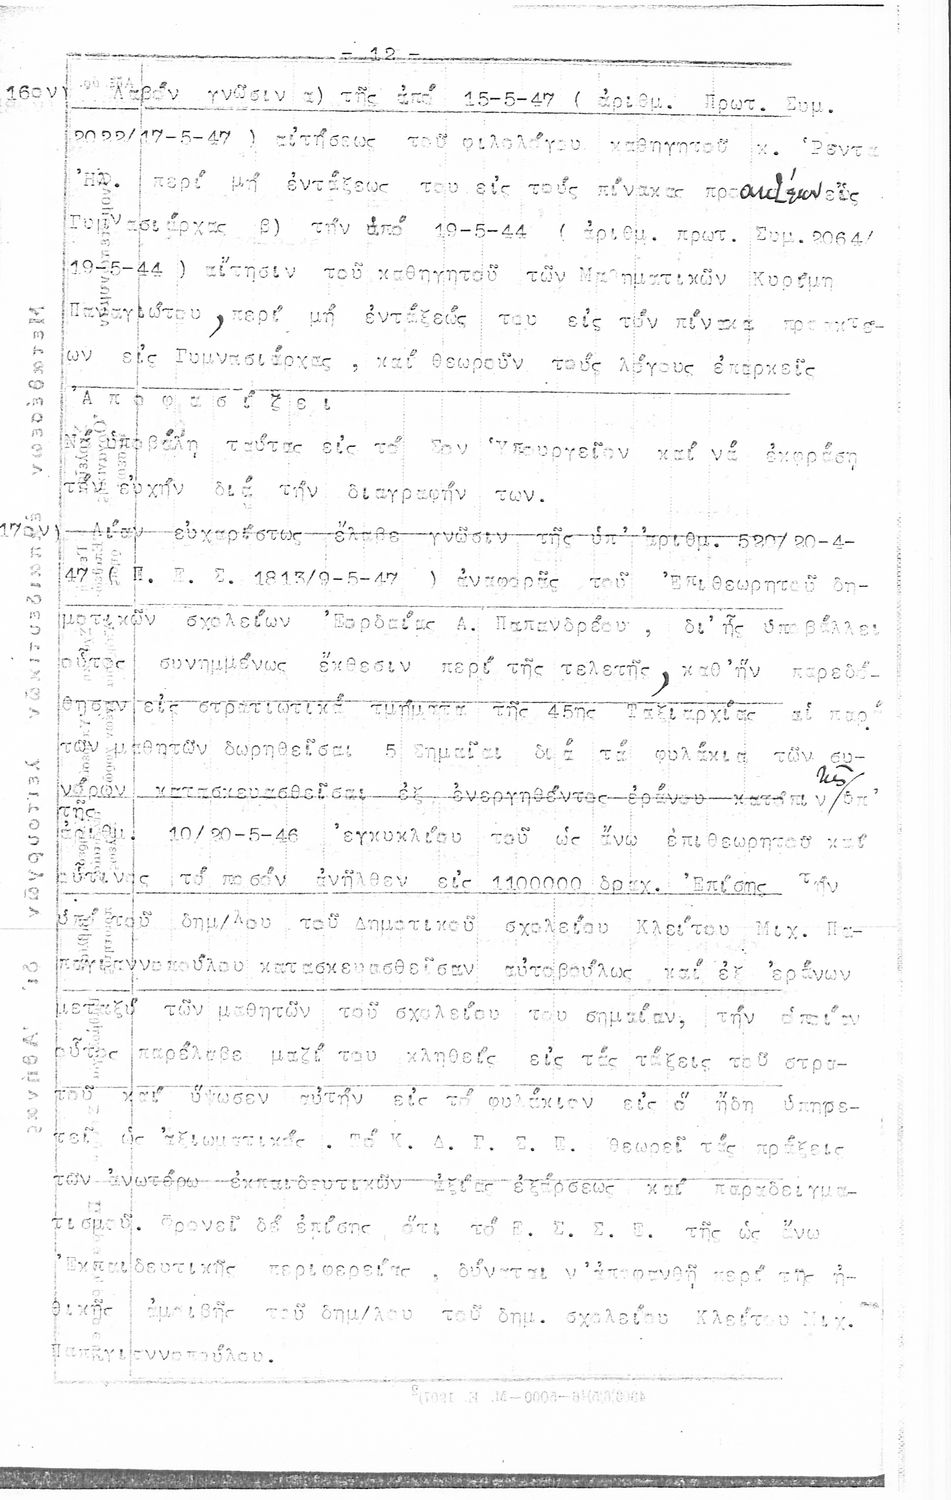 - 12 -
16ον) Λαβόν γνῶσιν α) τῆς ἀπό 15-5-47 ( ἀριθμ. Πρωτ. Συμ.
2022/17-5-47 ) αἰτήσεως τοῦ φιλολόγου καθηγητοῦ κ. Ῥεντα
Ἠλ. περί μή ἐντάξεως του εἰς τούς πίνακας προακτέων εἰς
Γυμνασιάρχας β) τήν ἀπό 19-5-44 ( ἀριθμ. πρωτ. Συμ.2064/
19-5-44 ) αἴτησιν τοῦ καθηγητοῦ τῶν Μαθηματικῶν Κυρίμη
Παναγιώτου , περί μή ἐντάξεώς του εἰς τόν πίνακα προακτέ-
ων εἰς Γυμνασιάρχας , καί θεωροῦν τούς λόγους ἐπαρκεῖς
Ἀ π ο φ α σ ί ζ ε ι
Νά ὑποβάλῃ ταύτας εἰς τό Σον Ὑπουργεῖον καί νά ἐκφράσῃ
τήν εὐχήν διά τήν διαγραφήν των.
17ον) Λίαν εὐχαρίστως ἔλαβε γνῶσιν τῆς ὑπ' ἀριθμ. 520/20-4-
47 ( Ε. Ε. Σ. 1813/9-5-47 ) ἀναφορᾶς τοῦ Ἐπιθεωρητοῦ δη-
μοτικῶν σχολείων Ἐορδαίας Α. Παπανδρέου , δι' ἧς ὑποβάλλει
οὗτος συνημμένως ἔκθεσιν περί τῆς τελετῆς, καθ' ἥν παρεδό-
θησαν εἰς στρατιωτικά τμήματα τῆς 45ης Ταξιαρχίας αἱ παρά
τῶν μαθητῶν δωρηθεῖσαι 5 Σημαῖαι διά τά φυλάκια τῶν συ-
νόρων κατασκευασθεῖσαι ἐξ ἐνεργηθέντος ἐράνου κατόπιν τῆς ὑπ'
ἀριθμ. 10/20-5-46 ἐγκυκλίου τοῦ ὡς ἄνω ἐπιθεωρητοῦ καί
οὗτινος τό ποσόν ἀνῆλθεν εἰς 1100000 δραχ. Ἐπίσης τήν
ὑπό τοῦ δημ/λου τοῦ Δημοτικοῦ σχολείου Κλείτου Μιχ. Πα-
παγιαννοπούλου κατασκευασθεῖσαν αὐτοβούλως καί ἐξ ἐράνων
μεταξύ τῶν μαθητῶν τοῦ σχολείου του σημαίαν, τήν ὁποίαν
οὗτος παρέλαβε μαζί του κληθείς εἰς τάς τάξεις τοῦ στρα-
τοῦ καί ὕψωσεν αὐτήν εἰς τό φυλάκιον εἰς ὅ ἤδη ὑπηρε-
τεῖ ὡς ἀξιωματικός . Τό Κ. Δ. Γ. Σ. Ε. θεωρεῖ τάς πράξεις
τῶν ἀνωτέρω ἐκπαιδευτικῶν ἀξίας ἐξάρσεως καί παραδειγμα-
τισμοῦ. Φρονεῖ δέ ἐπίσης ὅτι τό Ε. Σ. Σ. Ε. τῆς ὡς ἄνω
Ἐκπαιδευτικῆς περιφερείας , δύναται ν' ἀποφανθῇ περί τῆς ἠ-
θικῆς ἀμοιβῆς τοῦ δημ/λου τοῦ δημ. σχολείου Κλείτου Μιχ.
Παπαγιαννοπούλου.